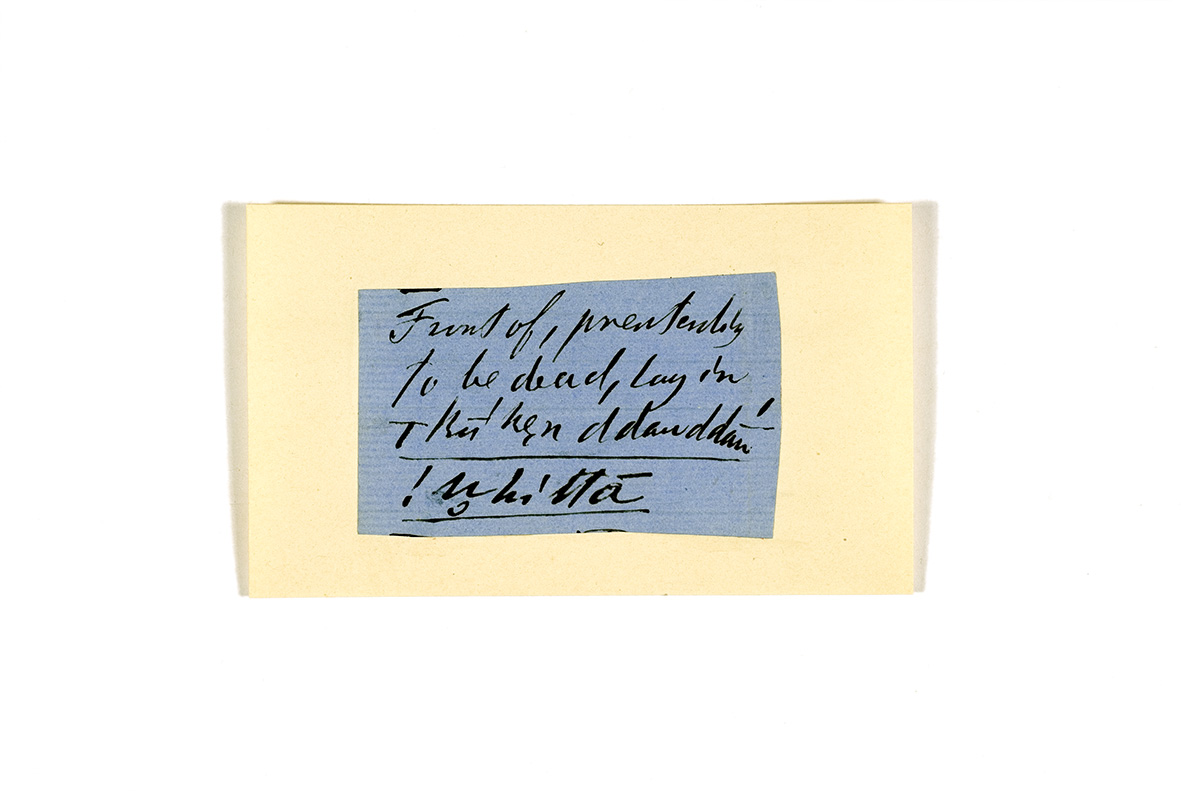 Front of, pretending
to be dead, lay in
ddauddāú
!ṇhi ttā